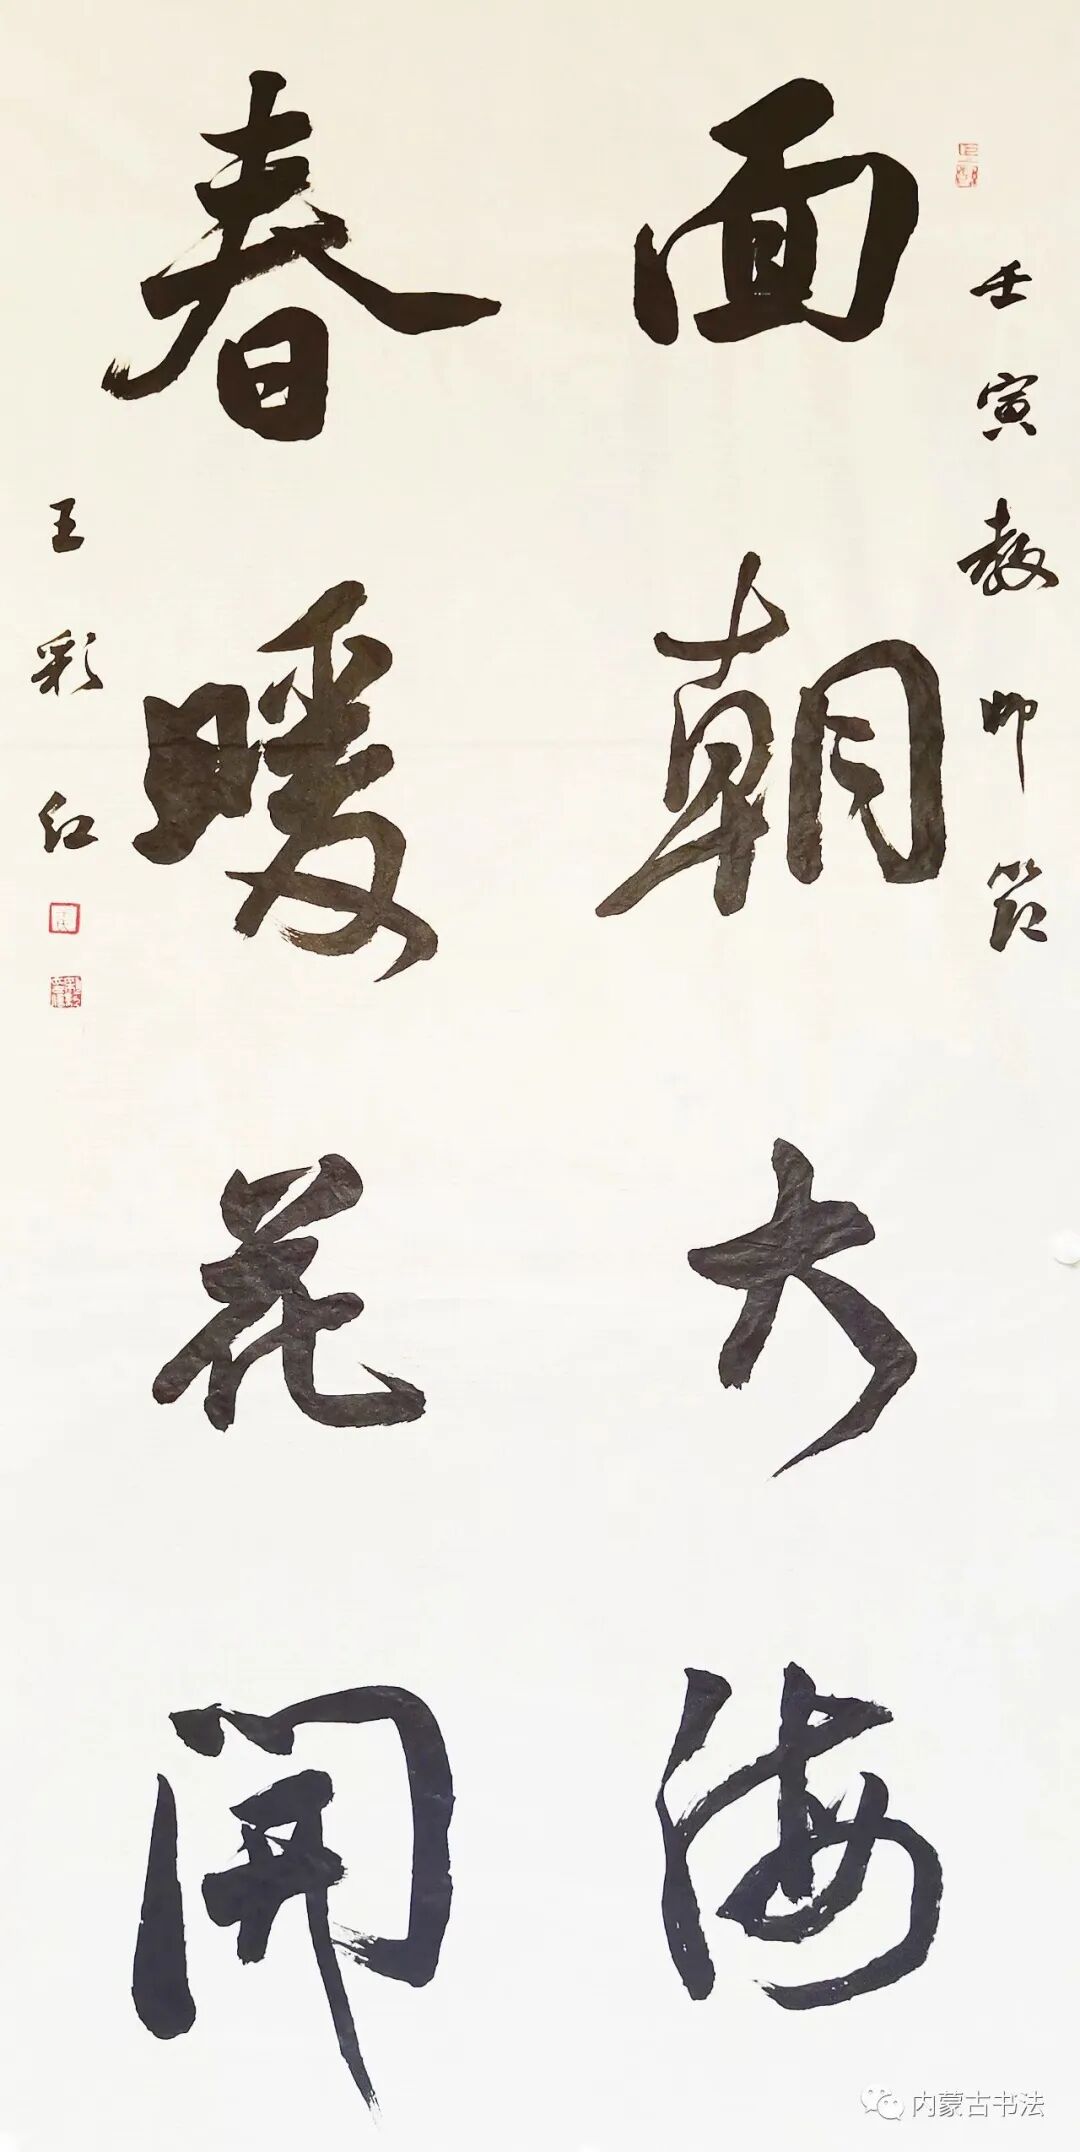 壬寅教师節
面朝大海
春暖花開
王彩红
内蒙古书法